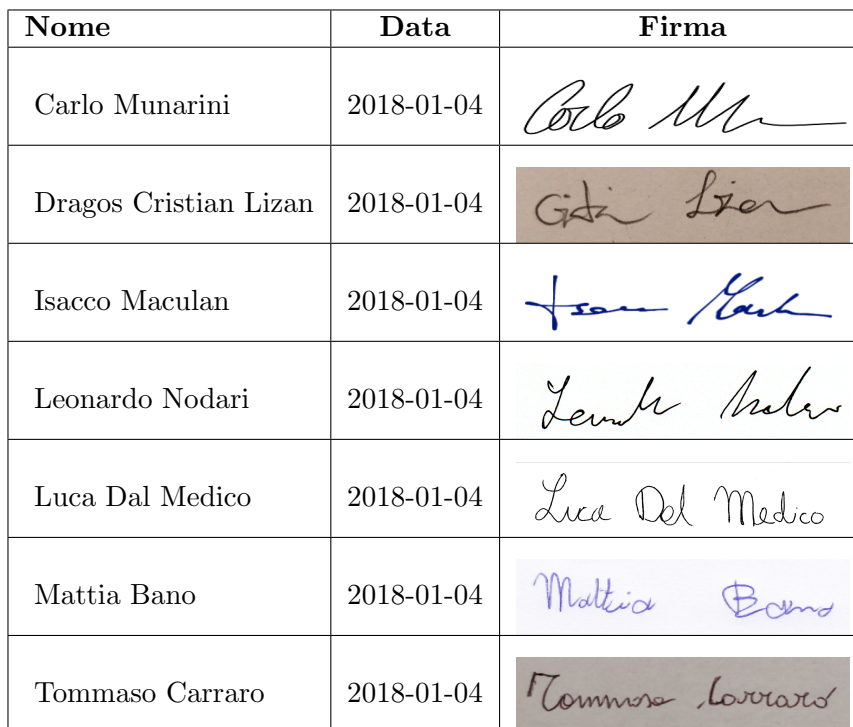 Nome Data Firma
Carlo Munarini 2018-01-04 Carlo
Dragos Cristian Lizan 2018-01-04 Lizan
Isacco Maculan 2018-01-04
Leonardo Nodari 2018-01-04
Luca Dal Medico 2018-01-04 Luca Dal Medico
Mattia Bano 2018-01-04 Mattia Bano
Tommaso Carraro 2018-01-04 Tommaso Carraro